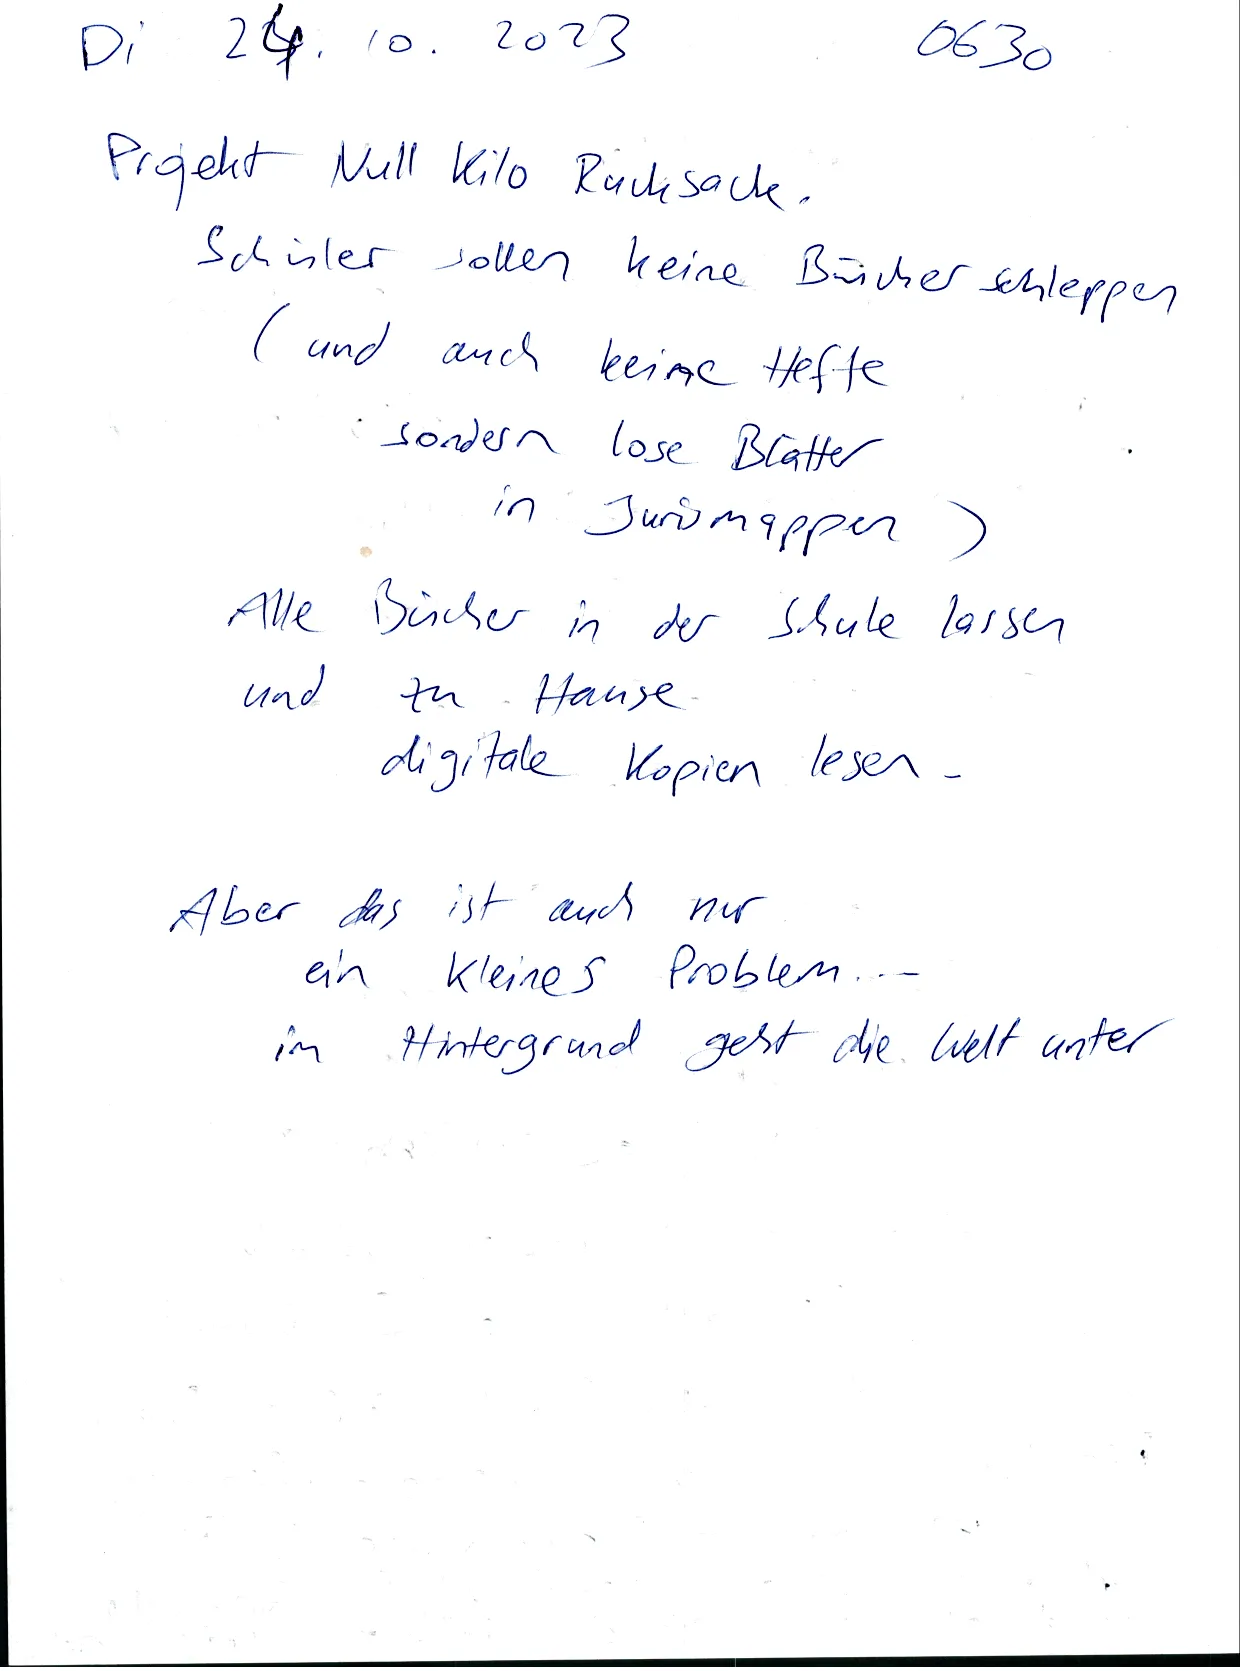 Di 24. 10. 2023 0630
Projekt Null Kilo Rucksack.
Schüler sollen keine Bücher schleppen
(und auch keine Hefte
sondern lose Blätter
in Jurismappen)
Alle Bücher in der Schule lassen
und zu Hause
digitale Kopien lesen.
Aber das ist auch nur
ein kleines Problem...
im Hintergrund geht die Welt unter